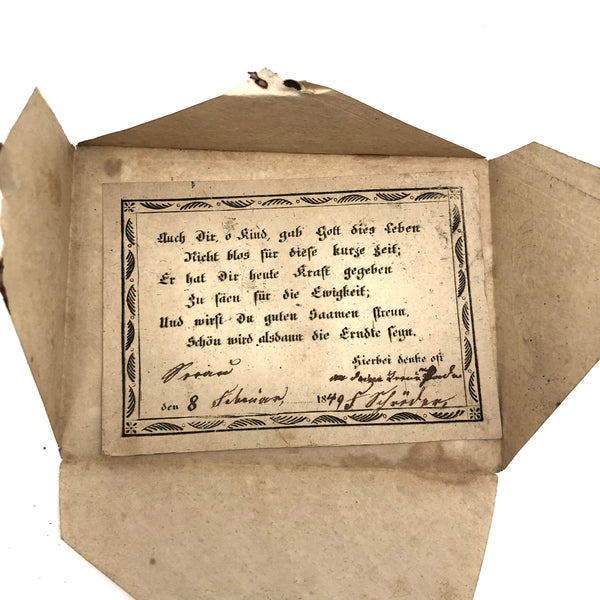 Auch Dir, o Kind, gab Gott dies Leben
Nicht blos für diese kurze Zeit;
Er hat Dir heute Kraft gegeben
Zu säen für die Ewigkeit;
Und wirst Du guten Saamen streun,
Schön wird alsdann die Erndte seyn.
Hierbei denke oft
Sorau
den 8 Februar, 1849 Schröder